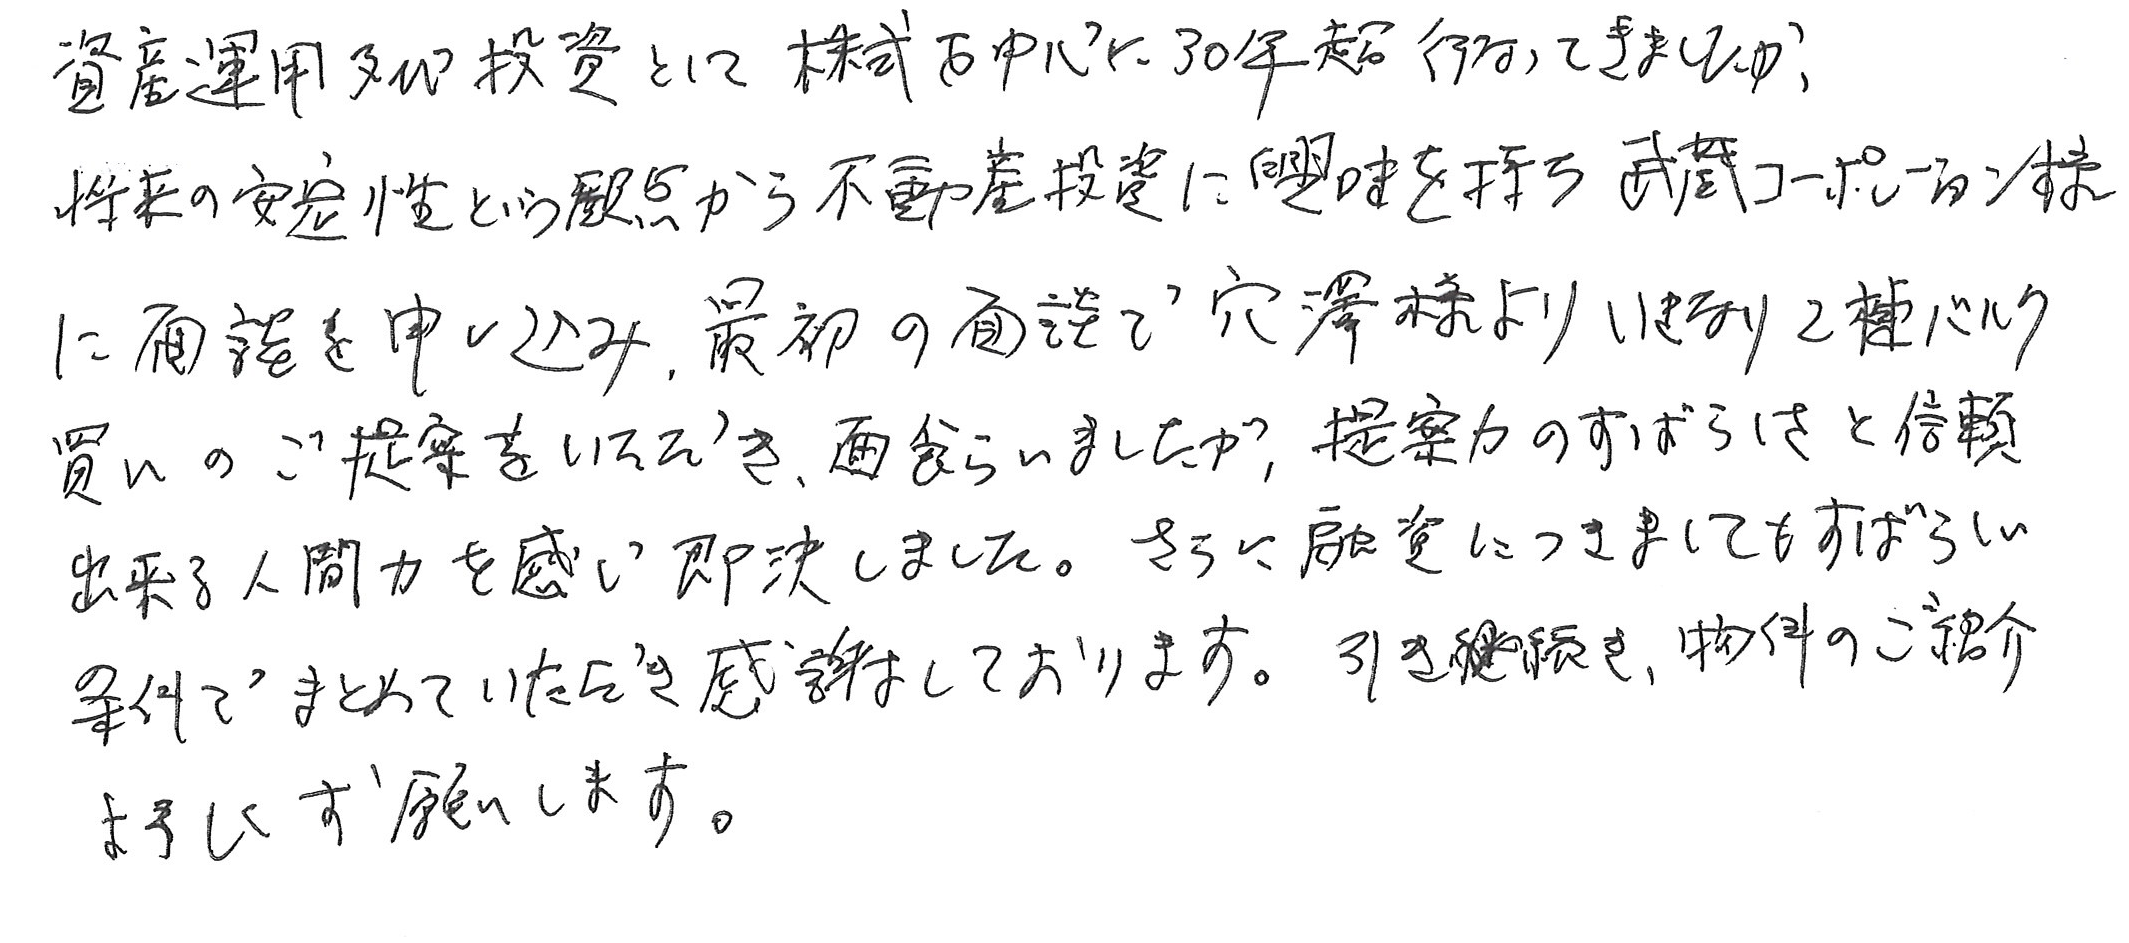 資産運用及び投資として株式を中心に30年超行なってきましたが、
将来の安定性という観点から不動産投資に興味を持ち武蔵コーポレーション様
に面談を申し込み、最初の面談で穴澤様よりいきなり2棟バルク
買いのご提案をいただき、面食らいましたが、提案力のすばらしさと信頼
出来る人間力を感じ即決しました。さらに融資につきましてもすばらしい
条件でまとめていただき感謝しております。引き続き、物件のご紹介
よろしくお願いします。